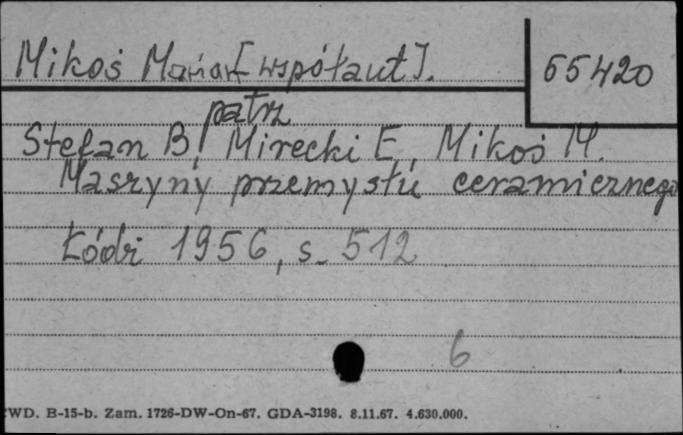 Mikoś Marian [współaut].
55420
patrz
Stefan B, Mirecki E, Mikoś M.
Maszyny przemysłu ceramicznego
Łódź 1956, s. 512
6
WD. B-15-b. Zam. 1726-DW-On-67. GDA-3198. 8.11.67. 4.630.000.